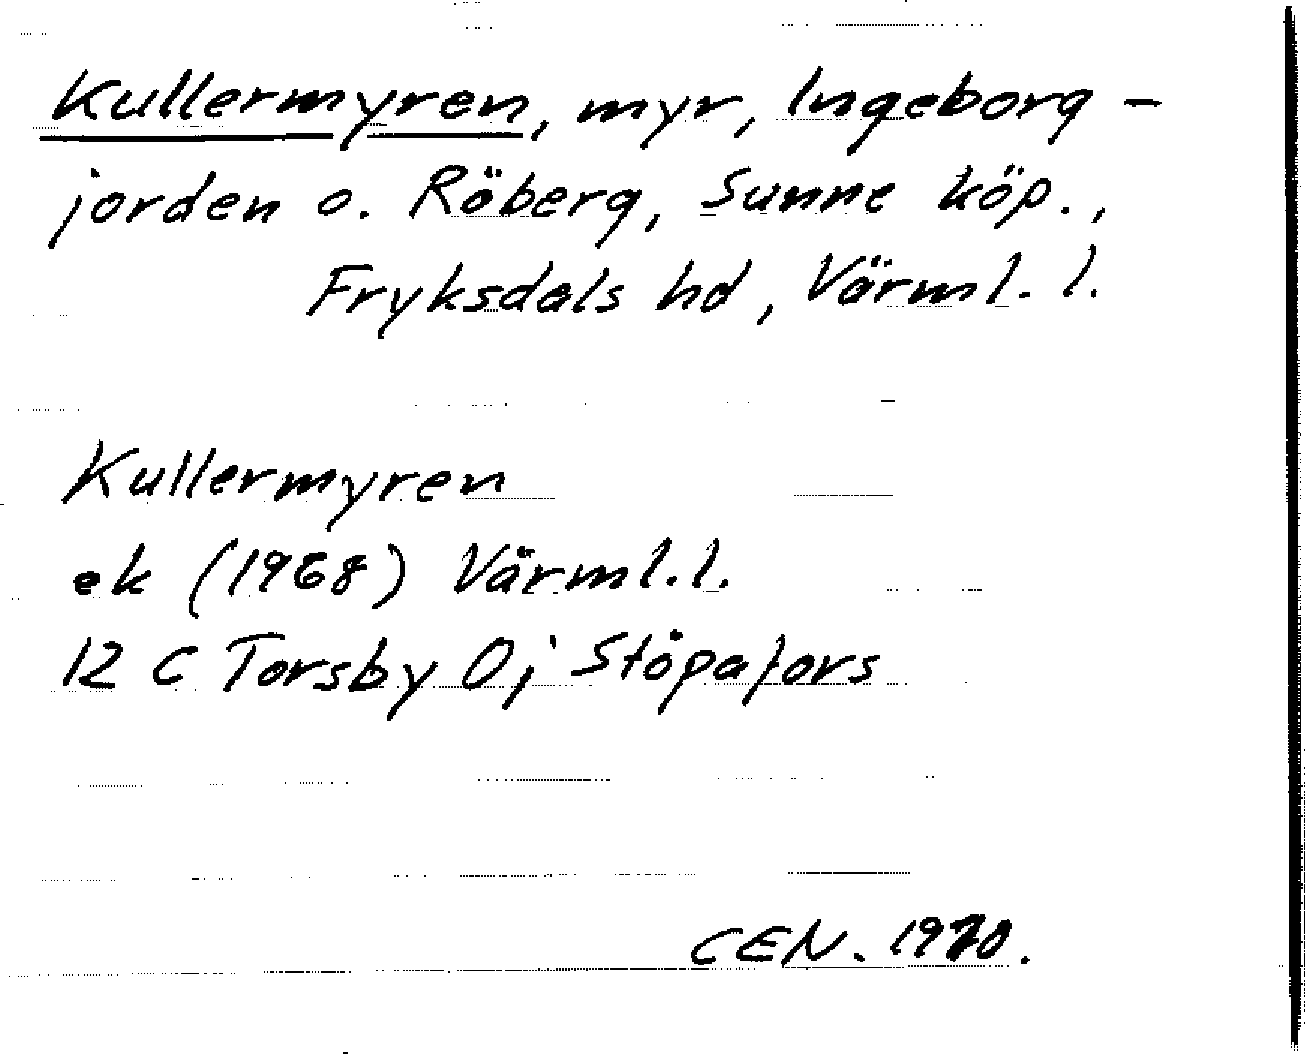 Kullermyren, myr, Ingeborg-
jorden o. Röberg, Sunne köp.,
Fryksdals hd, Värml. l.
Kullermyren
ek (1968) Värml. l.
12 C Torsby O; Stöpafors
CEN. 1970.